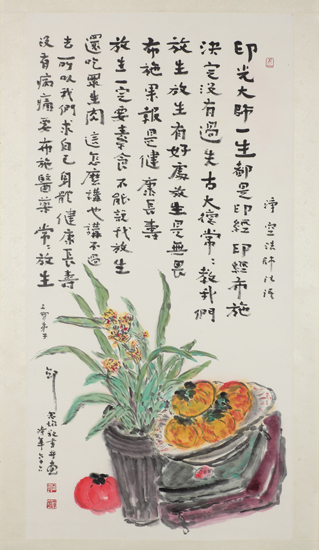 印光大師一生都是印經印經布施
決定沒有過失古大德常:教我們
放生放生有好處放生是無畏
布施果報是健康長壽
放生一定要素食不能說我放生
還吃眾生肉這怎麼講也講不過
去所以我們求自己身體健康長壽
沒有病痛要布施醫藥常:放生
淨空法師法語